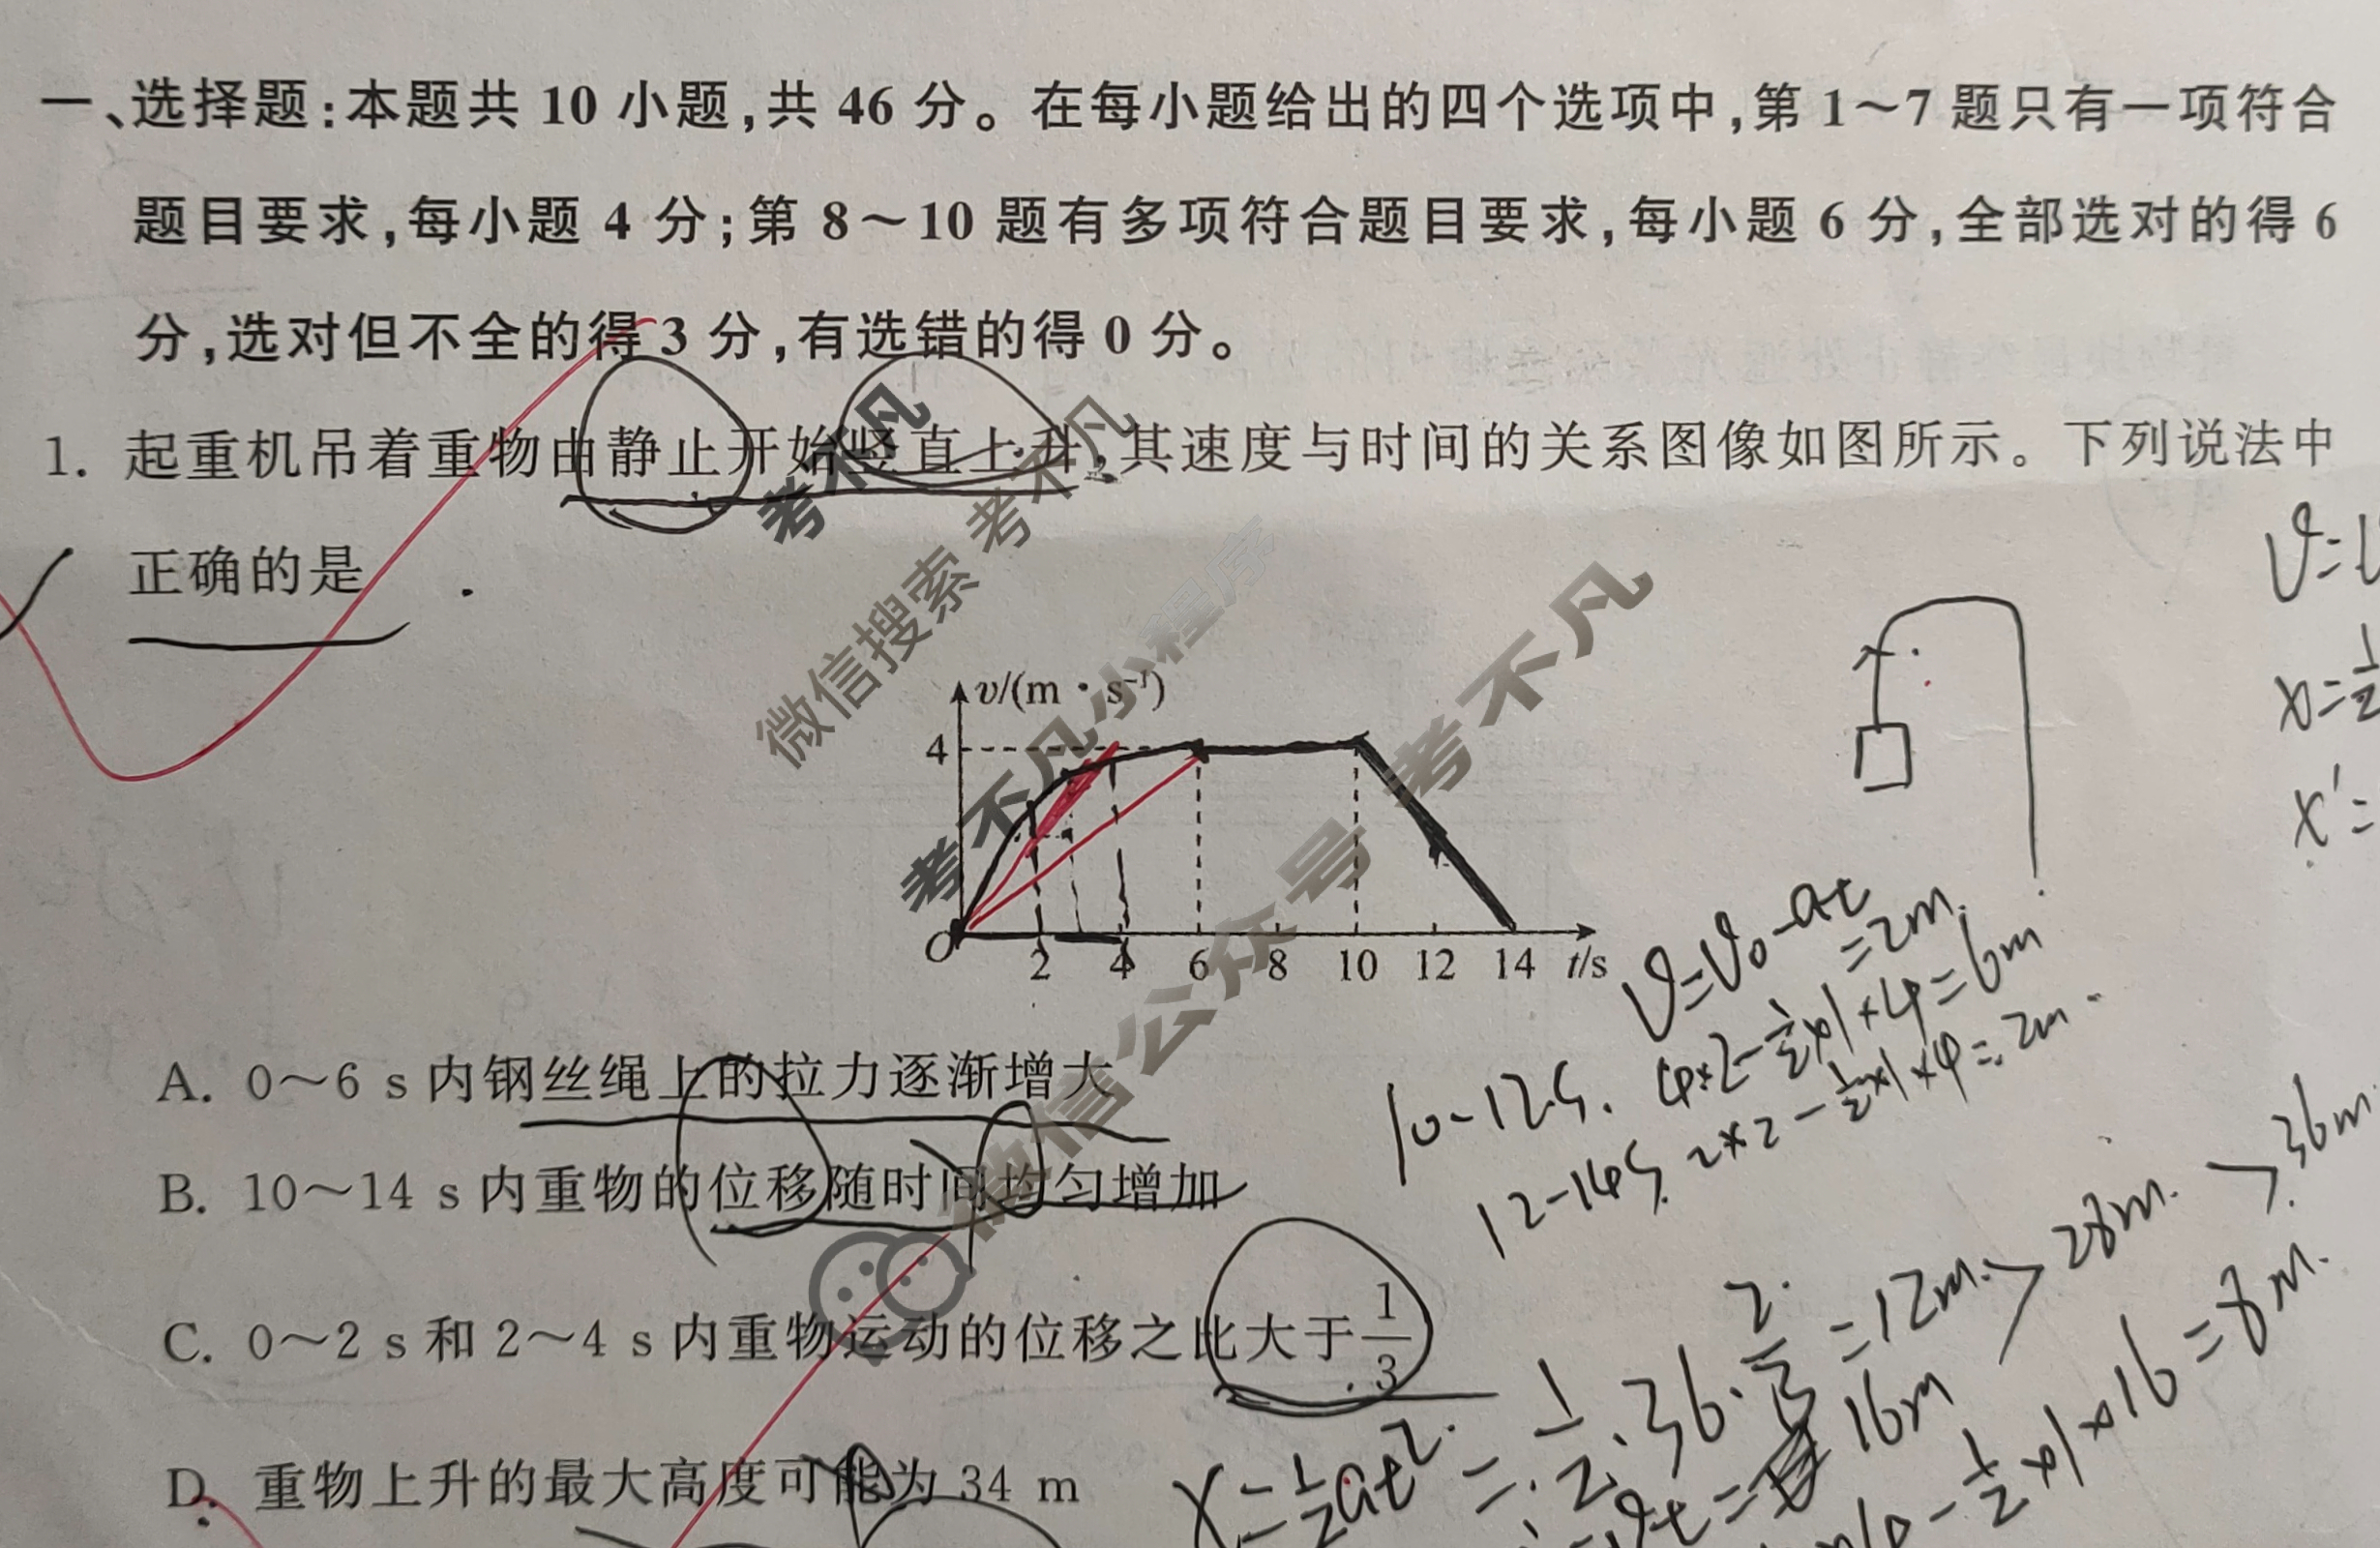 一、选择题:本题共 10 小题,共 46 分。在每小题给出的四个选项中,第 1～7 题只有一项符合
题目要求,每小题 4 分;第 8～10 题有多项符合题目要求,每小题 6 分,全部选对的得 6
分,选对但不全的得 3 分,有选错的得 0 分。
1. 起重机吊着重物由静止开始竖直上升,其速度与时间的关系图像如图所示。下列说法中
正确的是
v/(m·s⁻¹)
4
O 2 4 6 8 10 12 14 t/s
A. 0～6 s 内钢丝绳上的拉力逐渐增大
B. 10～14 s 内重物的位移随时间均匀增加
C. 0～2 s 和 2～4 s 内重物运动的位移之比大于 1/3
D. 重物上升的最大高度可能为 34 m
考不凡
微信搜索 考不凡
考不凡小程序
微信公众号 考不凡
v=v₀-at
=2m.
10-12s. 4×2-½×1×4=6m
12-14s. 2×2-½×1×4=2m.
28m. > 36m.
x=½at²=½·36·2/3=12m.
16m
-½×1×16=8m.